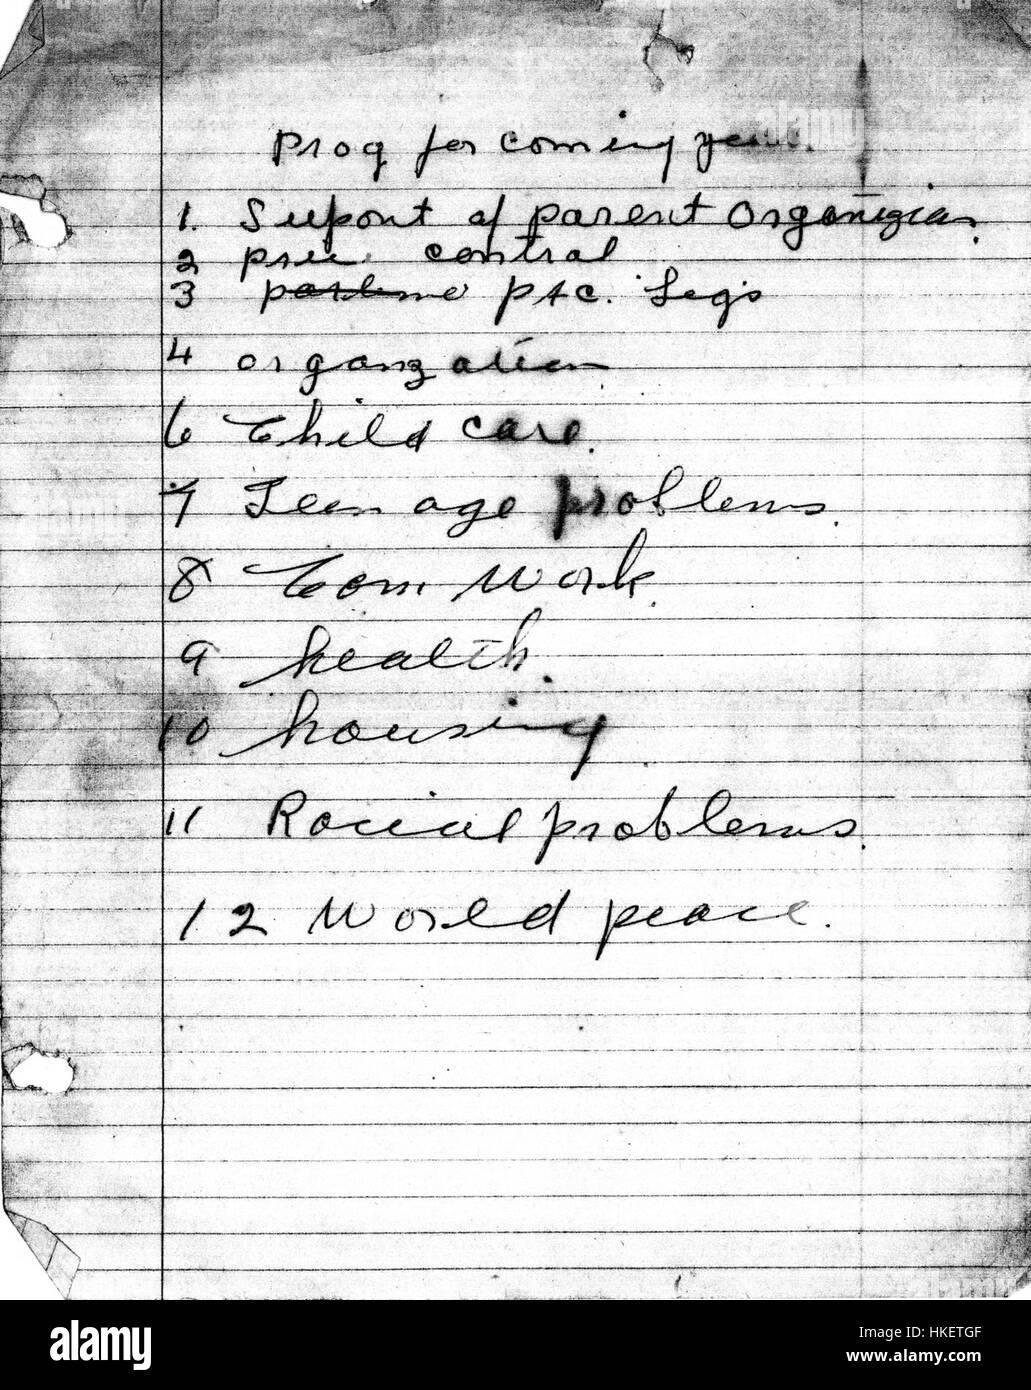 Prog for coming year.
1. Suport of parent Organizian.
2 control
3 p t c. Legs
4 organzation
6 Child care.
7 Teen age problems.
8 Com. Work.
9 health.
10 housing.
11 Racial problems.
12 World peace.
alamy
Image ID: HKETGF
www.alamy.com